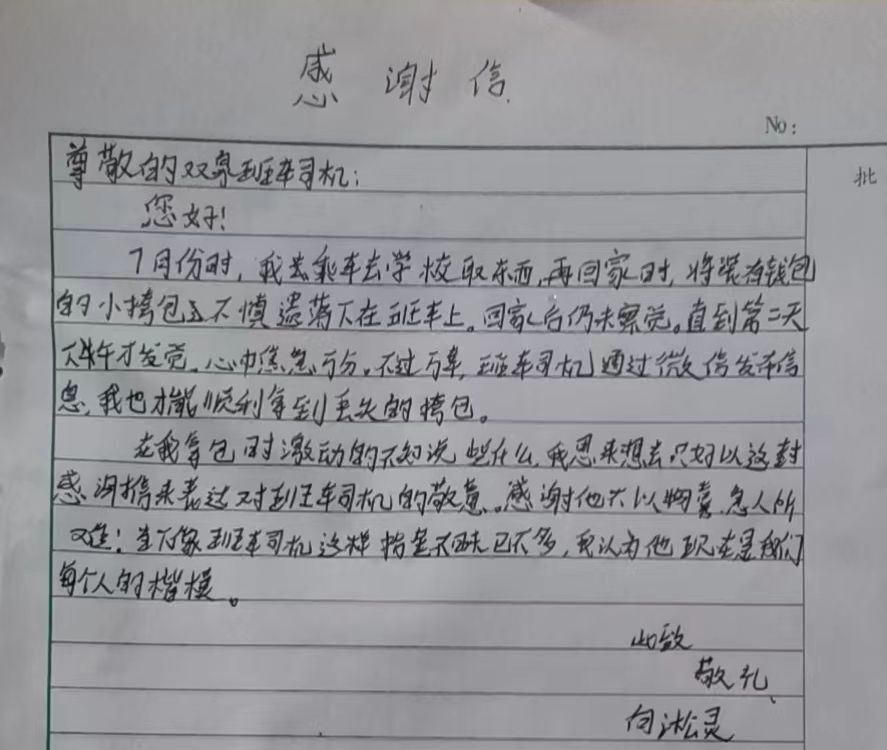 感谢信
No:
批
尊敬的双泉班车司机:
您好!
7月份时,我去乘车去学校取东西,再回家时,将装有钱包
的小挎包不慎遗落下在班车上。回家后仍未察觉。直到第二天
下午才发觉,心中焦急万分。不过万幸,班车司机通过微信发布信
息,我也才能顺利拿到丢失的挎包。
在我拿包时激动的不知说些什么,我思来想去只好以这封
感谢信来表达对班车司机的敬意。感谢他不以物喜,急人所
难!当下像班车司机这样拾金不昧已不多,我认为他现在是我们
每个人的楷模。
此致
敬礼
向淞灵